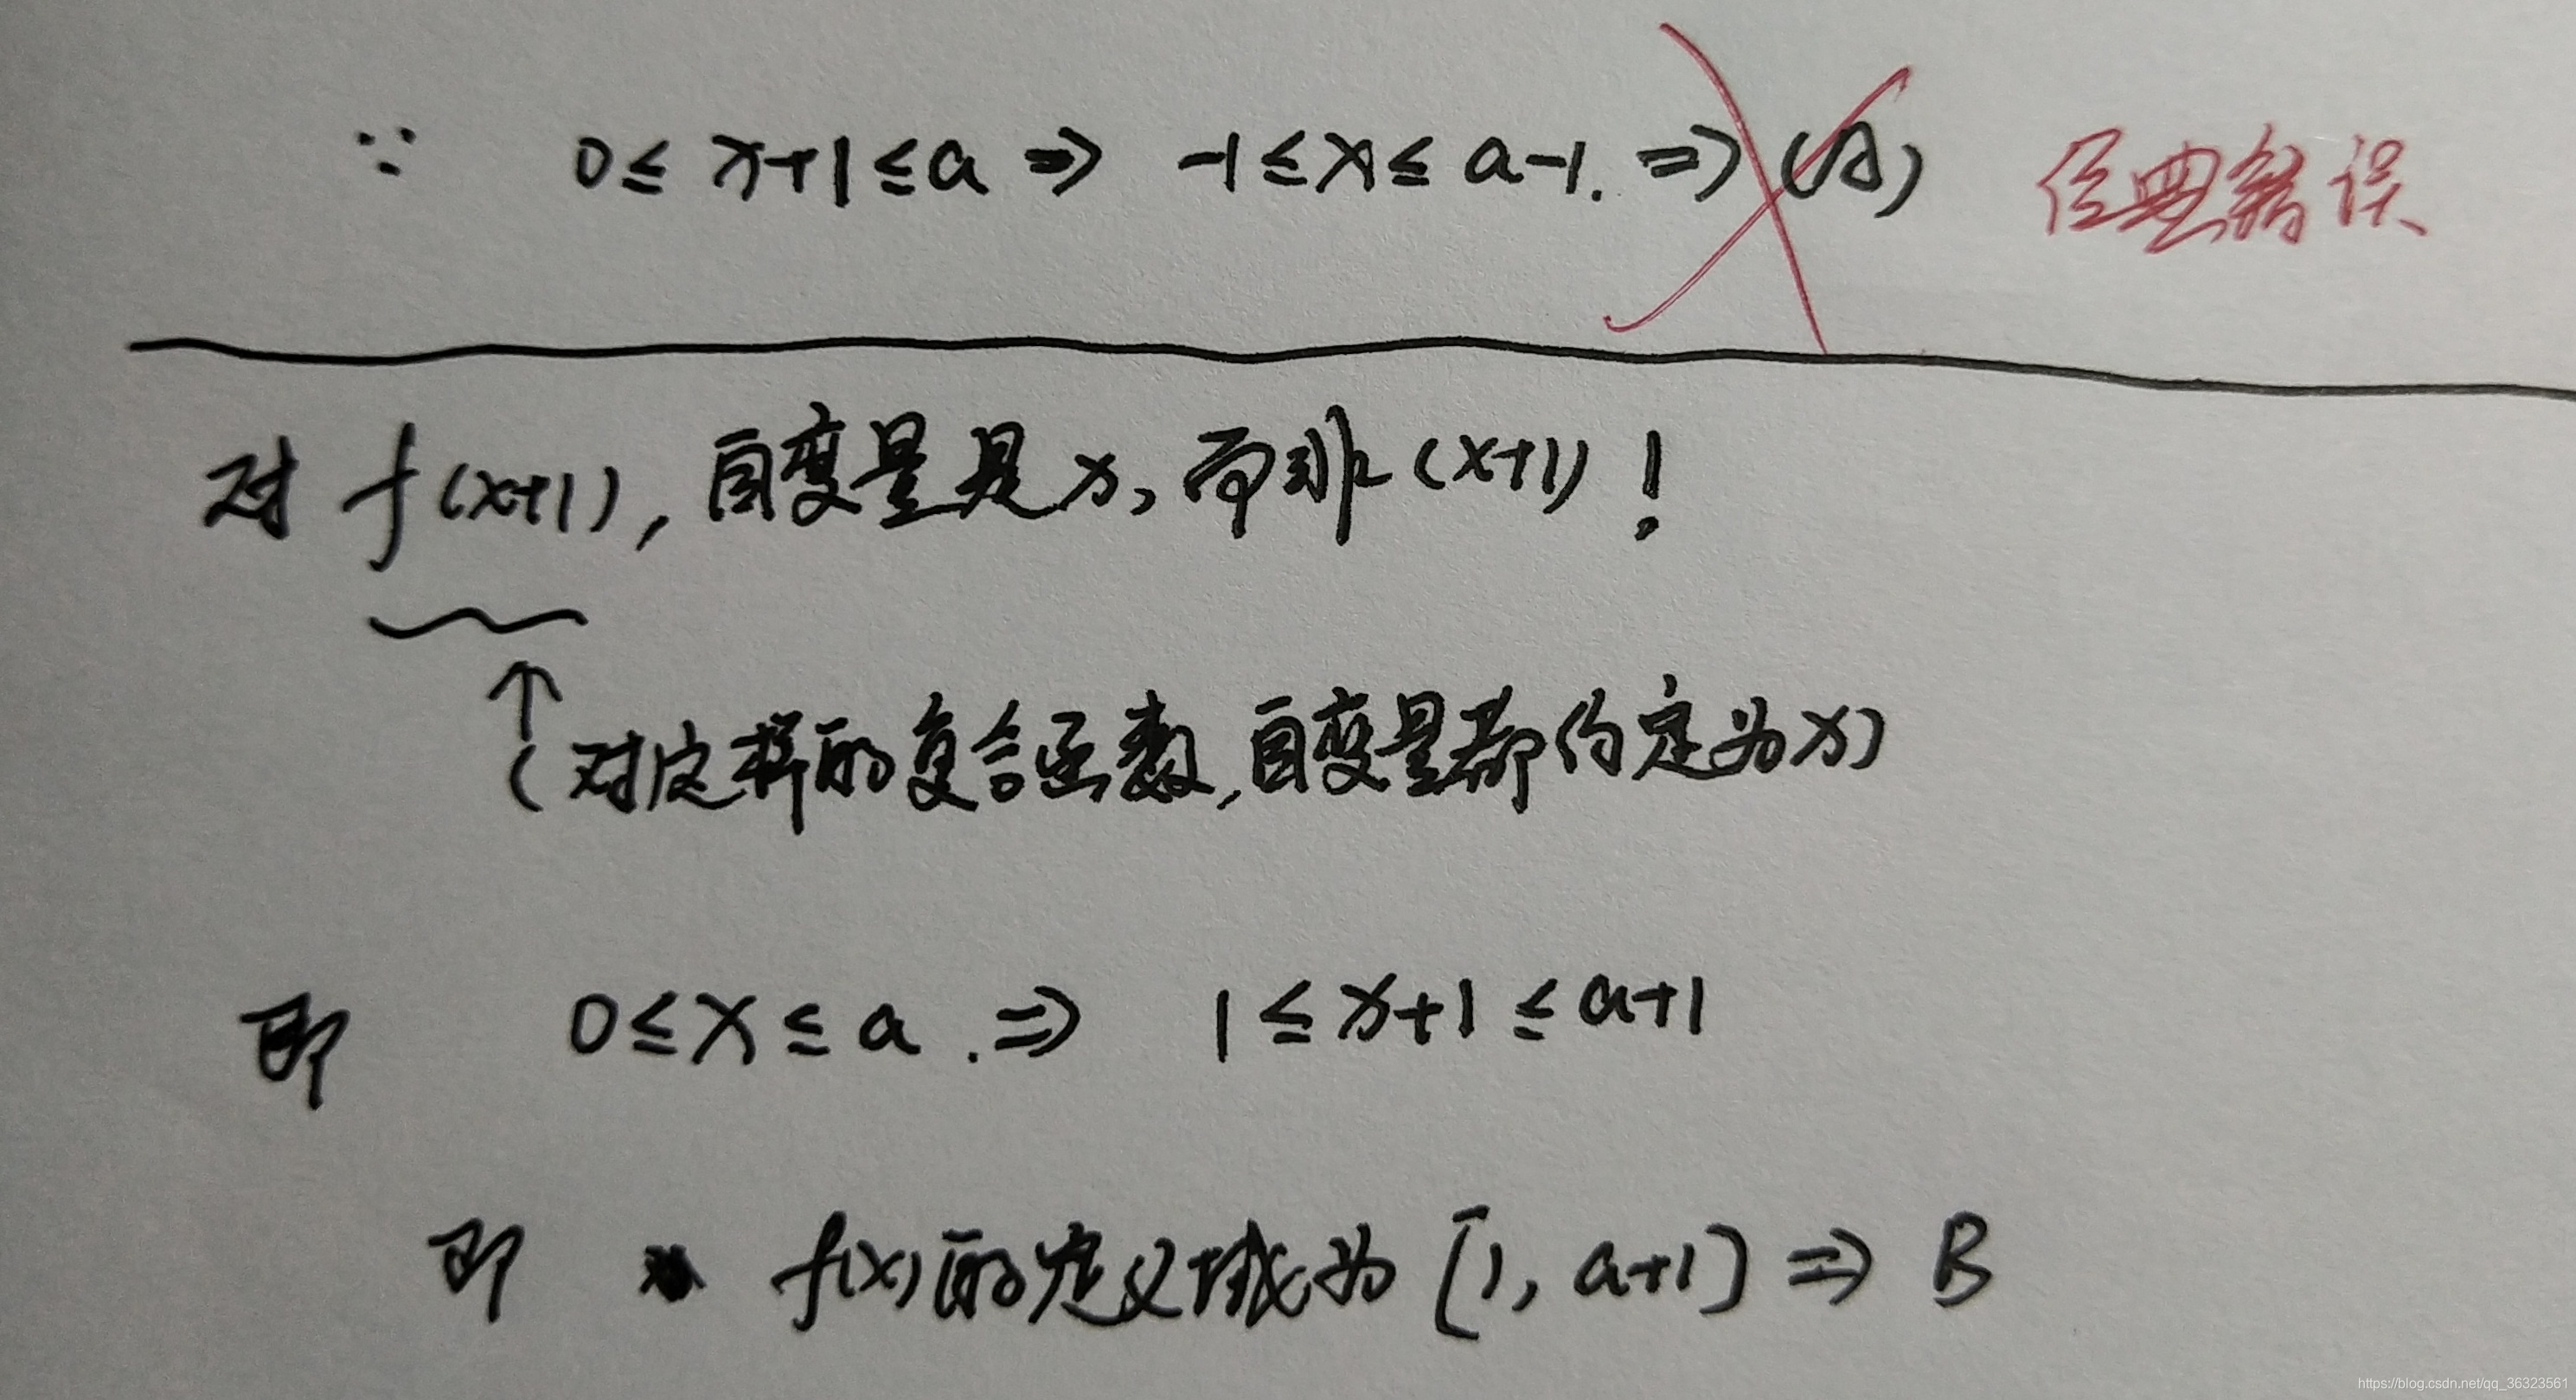 ∵ 0≤x+1≤a ⇒ -1≤x≤a-1. ⇒ (A) 经典错误
对 f(x+1), 自变量是x, 而非(x+1)!
↑
(对这样的复合函数,自变量都约定为x)
即 0≤x≤a. ⇒ 1≤x+1≤a+1
即 f(x)的定义域为[1, a+1] ⇒ B
https://blog.csdn.net/qq_36323561